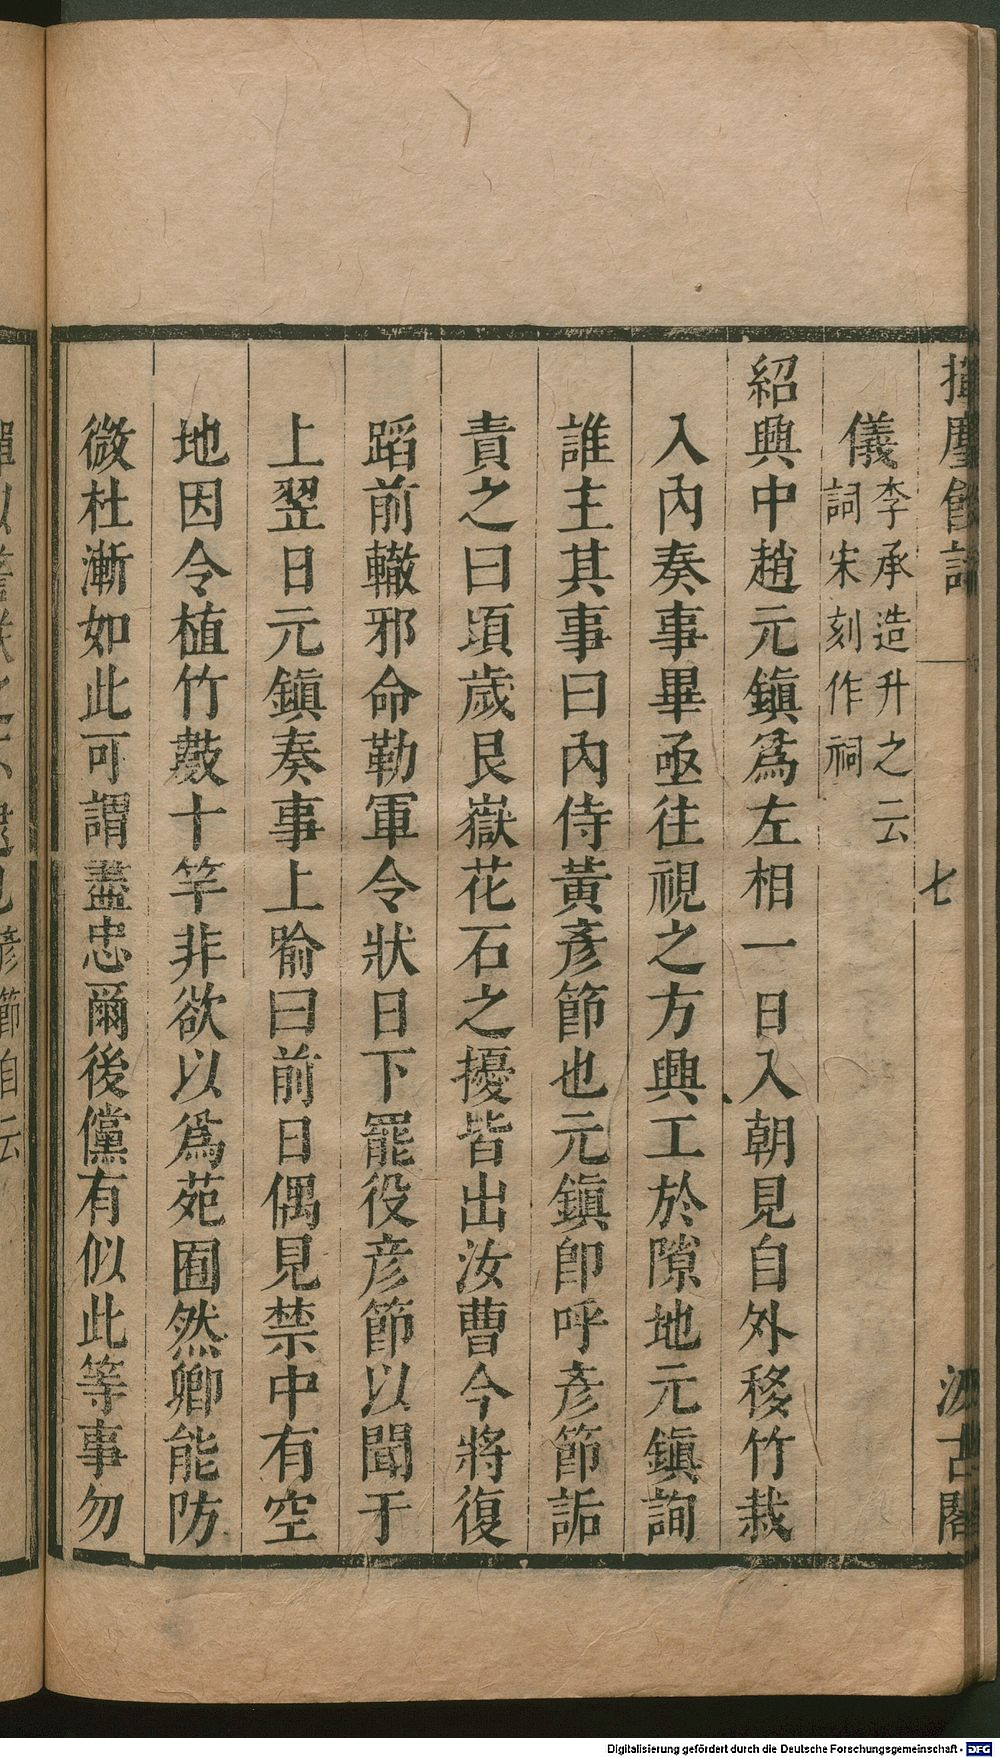 揮麈餘話
七
汲古閣
儀李承造升之云
詞宋刻作祠
紹興中趙元鎮爲左相一日入朝見自外移竹栽
入內奏事畢亟往視之方興工於隙地元鎮詢
誰主其事曰內侍黃彥節也元鎮卽呼彥節詬
責之曰頃歲艮嶽花石之擾皆出汝曹今將復
蹈前轍邪命勒軍令狀日下罷役彥節以聞于
上翌日元鎮奏事上喻曰前日偶見禁中有空
地因令植竹數十竿非欲以爲苑囿然卿能防
微杜漸如此可謂盡忠爾後儻有似此等事勿
Digitalisierung gefördert durch die Deutsche Forschungsgemeinschaft - DFG